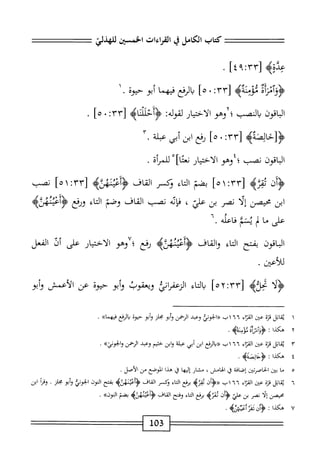 كتاب الكامل في القراءات الخمسين للهذلي
عِدَّةٍ﴾ [٤٩:٣٣] .
﴿وَٱمْرَأَةٌ مُّؤْمِنَةٌ﴾ [٥٠:٣٣] بالرفع فيهما أبو حيوة .١
الباقون بالنصب ؛٢ وهو الاختيار لقوله: ﴿أَحْلَلْنَا﴾ [٥٠:٣٣] .
﴿[خَالِصَةٌ﴾ [٥٠:٣٣] رفع ابن أبي عبلة .٣
الباقون نصب ؛٤ وهو الاختيار نعتًا]٥ للمرأة .
﴿أَن تُقِرَّ﴾ [٥١:٣٣] بضمّ التاء وكسر القاف ﴿أَعْيُنَهُنَّ﴾ [٥١:٣٣] نصب
ابن محيصن إلّا نصر بن عليّ ، فإنّه نصب القاف وضمّ التاء ورفع ﴿أَعْيُنُهُنَّ﴾
على ما لم يُسَمَّ فاعلُه .٦
الباقون بفتح التاء والقاف ﴿أَعْيُنُهُنَّ﴾ رفع ؛٧ وهو الاختيار على أنّ الفعل
للأعين .
﴿لَا تَحِلُّ﴾ [٥٢:٣٣] بالتاء الزعفرانيُّ ويعقوبُ وأبو حيوة عن الأعمش وأبو
١ يُقابل قرّة عين القرّاء ١٦٦ب «الجونيُّ وعبد الرحمن وأبو مجلز وأبو حيوة بالرفع فيهما» .
٢ هكذا : ﴿وَٱمْرَأَةً مُّؤْمِنَةً﴾ .
٣ يُقابل قرّة عين القرّاء ١٦٦ب «بالرفع ابن أبي عبلة وابن خثيم وعبد الرحمن والجونيّ» .
٤ هكذا : ﴿خَالِصَةً﴾ .
٥ ما بين الحاصرتين إضافة في الهامش ، مشار إليها في هذا الموضع من الأصل .
٦ يُقابل قرّة عين القرّاء ١٦٦ب «﴿أَن تُقِرَّ﴾ برفع التاء وكسر القاف ﴿أَعْيُنَهُنَّ﴾ بفتح النون الجونيُّ وأبو مجلز . وقرأ ابن
محيصن إلّا نصر بن عليّ ﴿أَن تُقَرَّ﴾ برفع التاء وفتح القاف ﴿أَعْيُنُهُنَّ﴾ بضمّ النون» .
٧ هكذا : ﴿أَن تَقَرَّ أَعْيُنُهُنَّ﴾ .
103